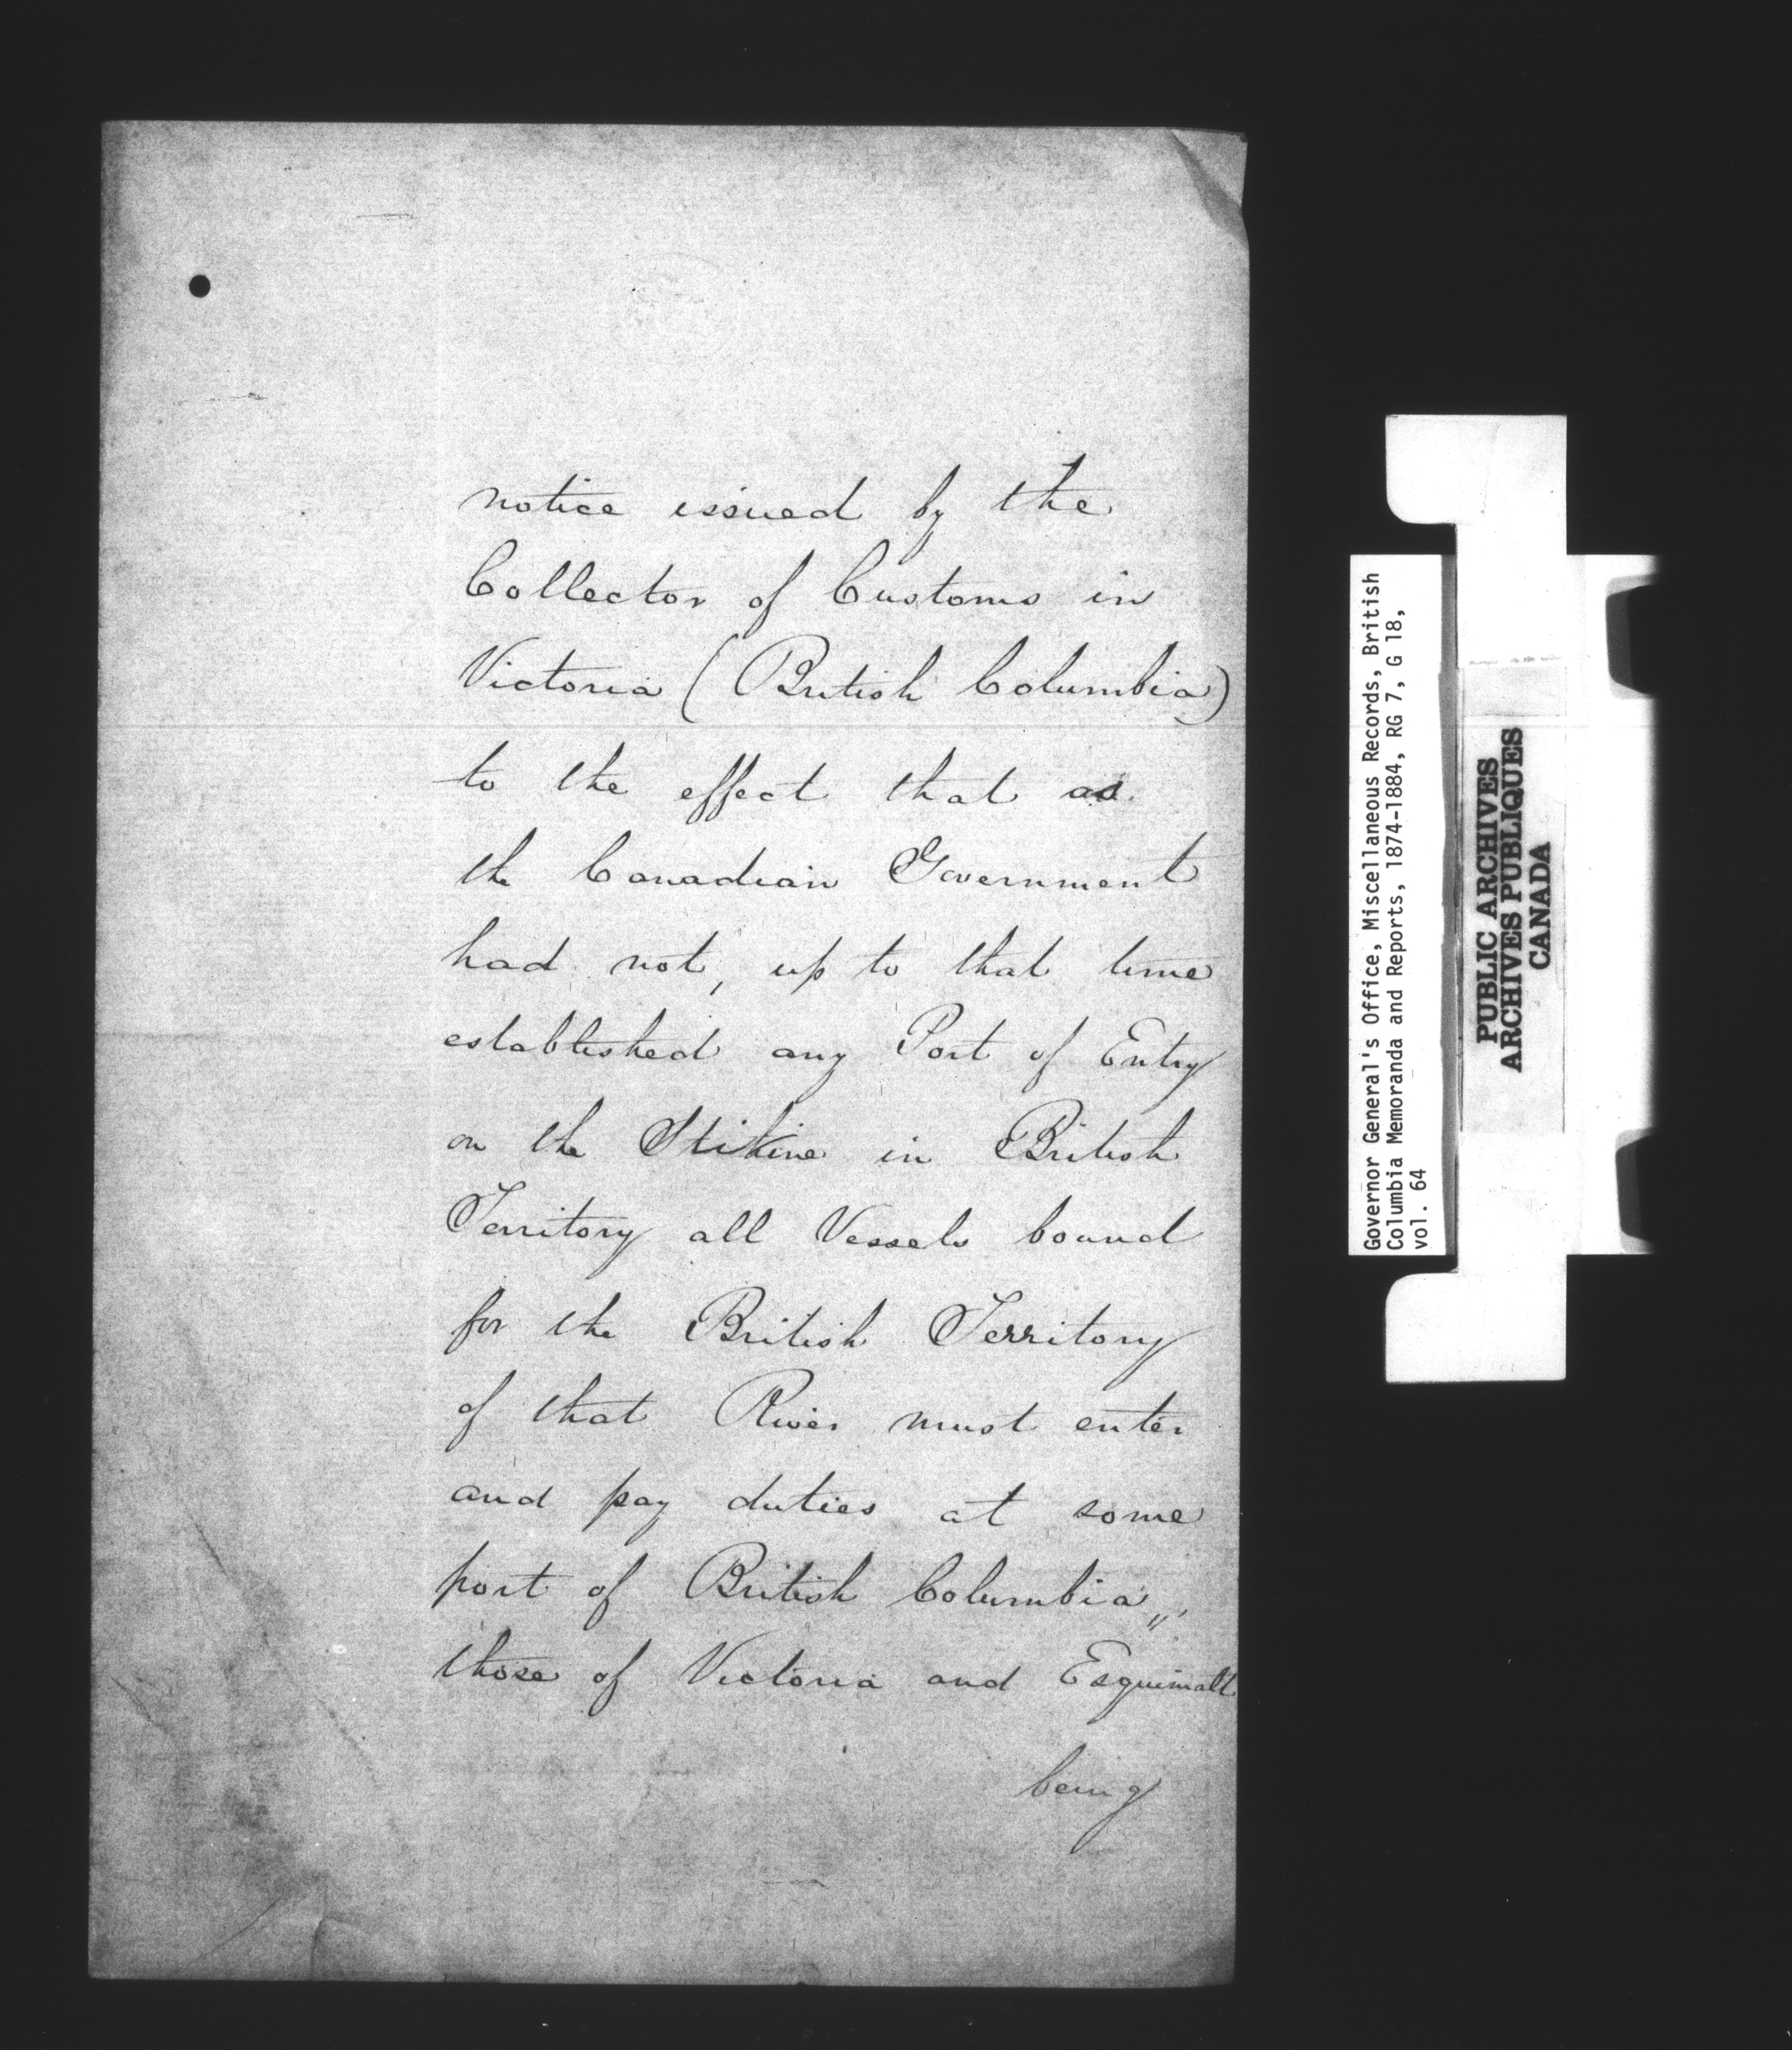 notice issued by the
Collector of Customs in
Victoria (British Columbia)
to the effect that as
the Canadian Government
had not, up to that time
established any Port of Entry
on the Stikine in British
Territory all Vessels bound
for the British Territory
of that River must enter
and pay duties at some
port of British Columbia,,
those of Victoria and Esquimalt
being
Governor General's Office, Miscellaneous Records, British
Columbia Memoranda and Reports, 1874-1884, RG 7, G 18,
vol. 64
PUBLIC ARCHIVES
ARCHIVES PUBLIQUES
CANADA